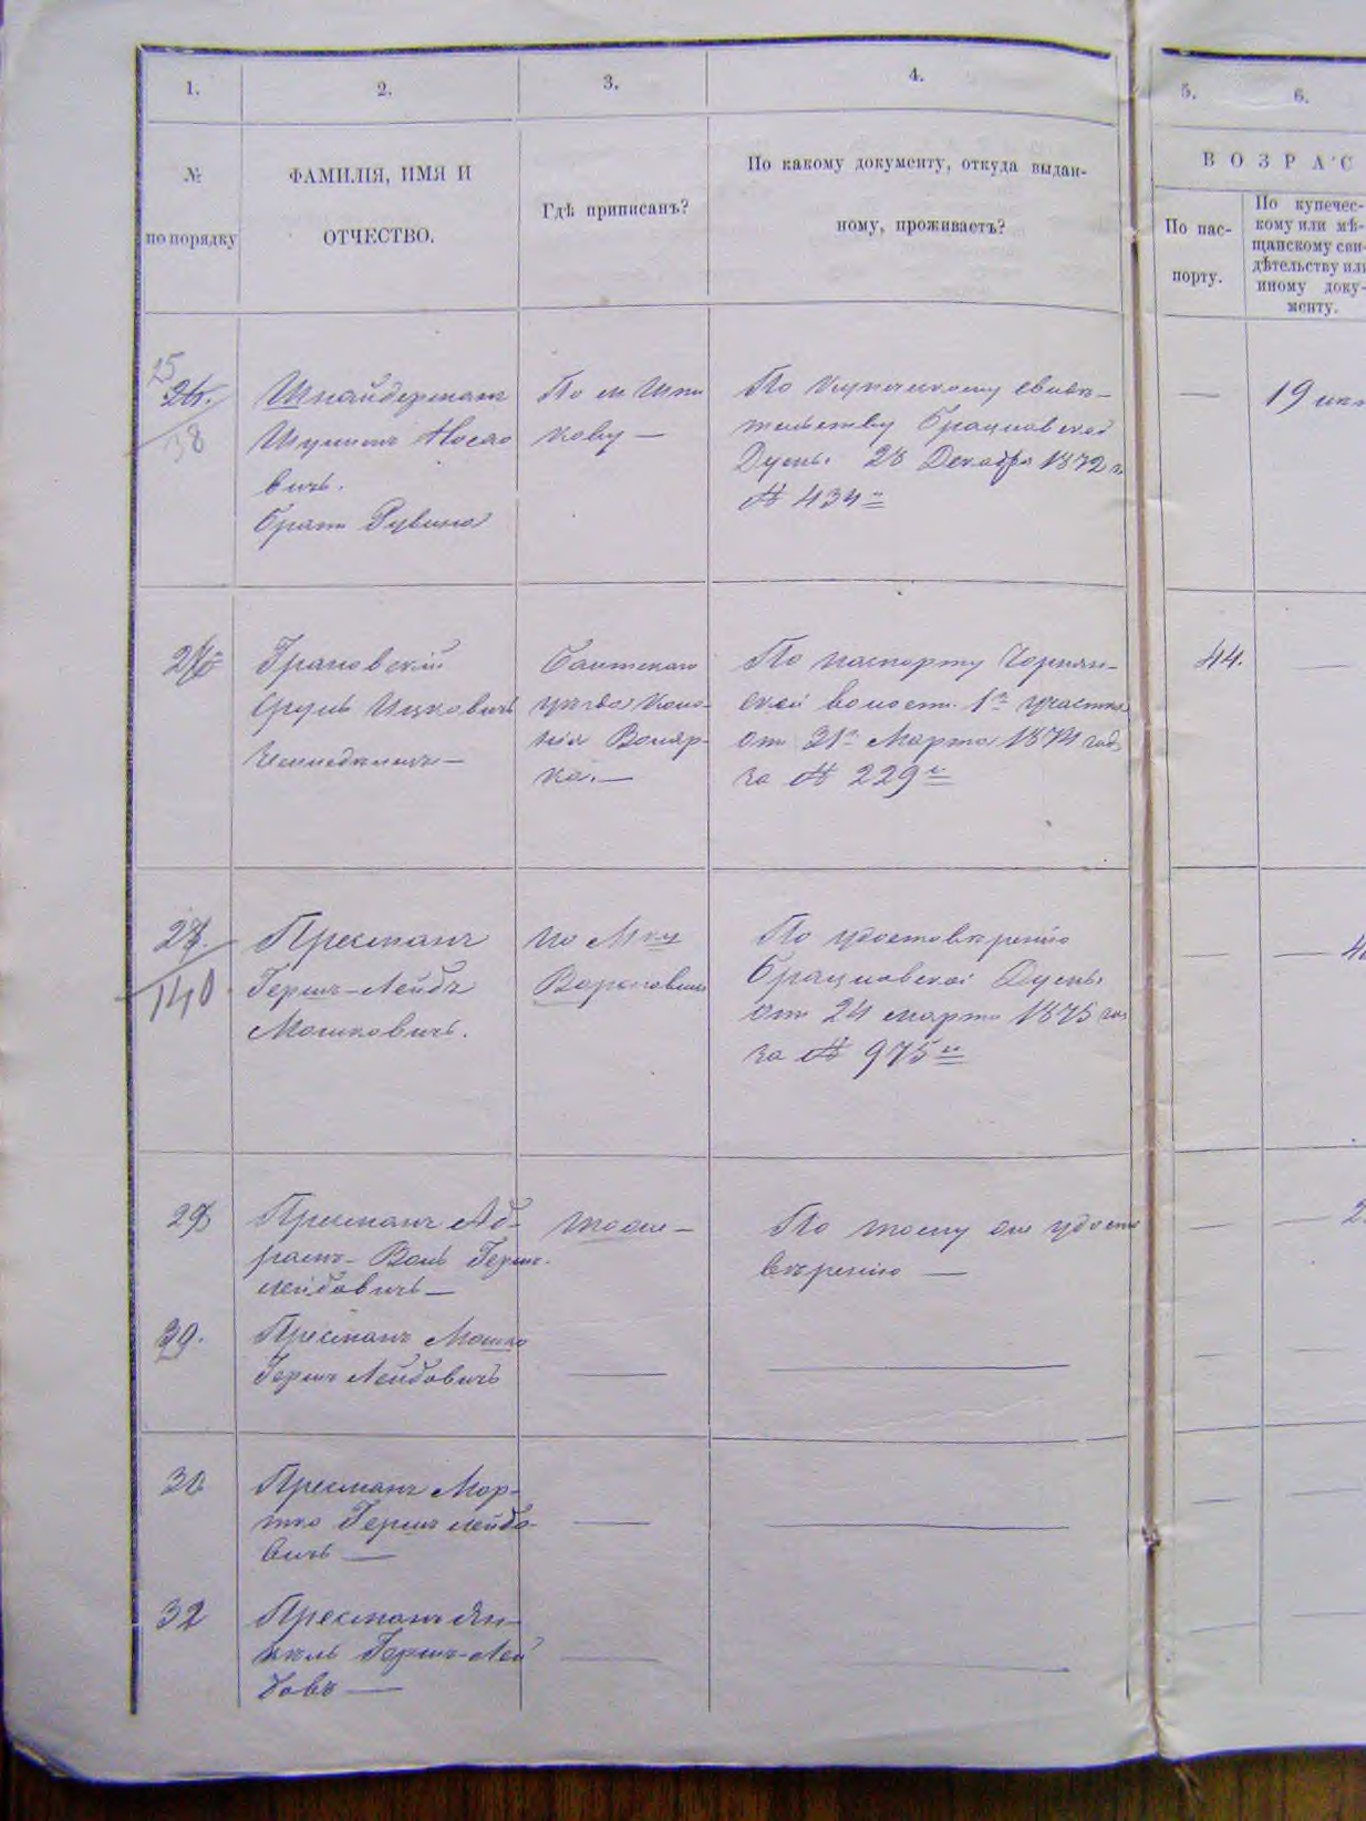 1.
2.
3.
4.
5.
6.
№
по порядку
ФАМИЛІЯ, ИМЯ И
ОТЧЕСТВО.
Гдѣ приписанъ?
По какому документу, откуда выдан-
ному, проживаетъ?
ВОЗРАС
По пас-
порту.
По купечес-
кому или мѣ-
щанскому сви-
дѣтельству или
иному доку-
менту.
25
38
Шнайдерманъ
Носео
вичъ.
братъ Рувина
По м Шпи
кову —
По Купеческому свидѣ-
тельству Брацлавской
Думы 28 Декабря 1872 г
№ 434й
—
19
Грановскій
Сруль Ицковичъ
Балтскаго
уѣзда Коло-
нія
ка. —
По паспорту
ской волости 1го участка
отъ 31го Марта 1874 год
за № 229й
44.
—
140
Пресманъ
Гершъ-Лейбъ
Мошковичъ.
по Мку
Вороновиц
По удостовѣренію
Брацлавской Думы
отъ 24 марта 1875 го
за № 975й
—
— 4
Пресманъ Аб-
рамъ- Волъ Гершъ-
лейбовичъ —
тоже —
По тому же удосто
вѣренію —
—
— 2
Пресманъ Мошко
Гершъ Лейбовичъ
Пресманъ Мор-
тко Гершъ лейбо-
вичъ —
32
Пресманъ Ян-
кель Гершъ-Лей
бовъ —